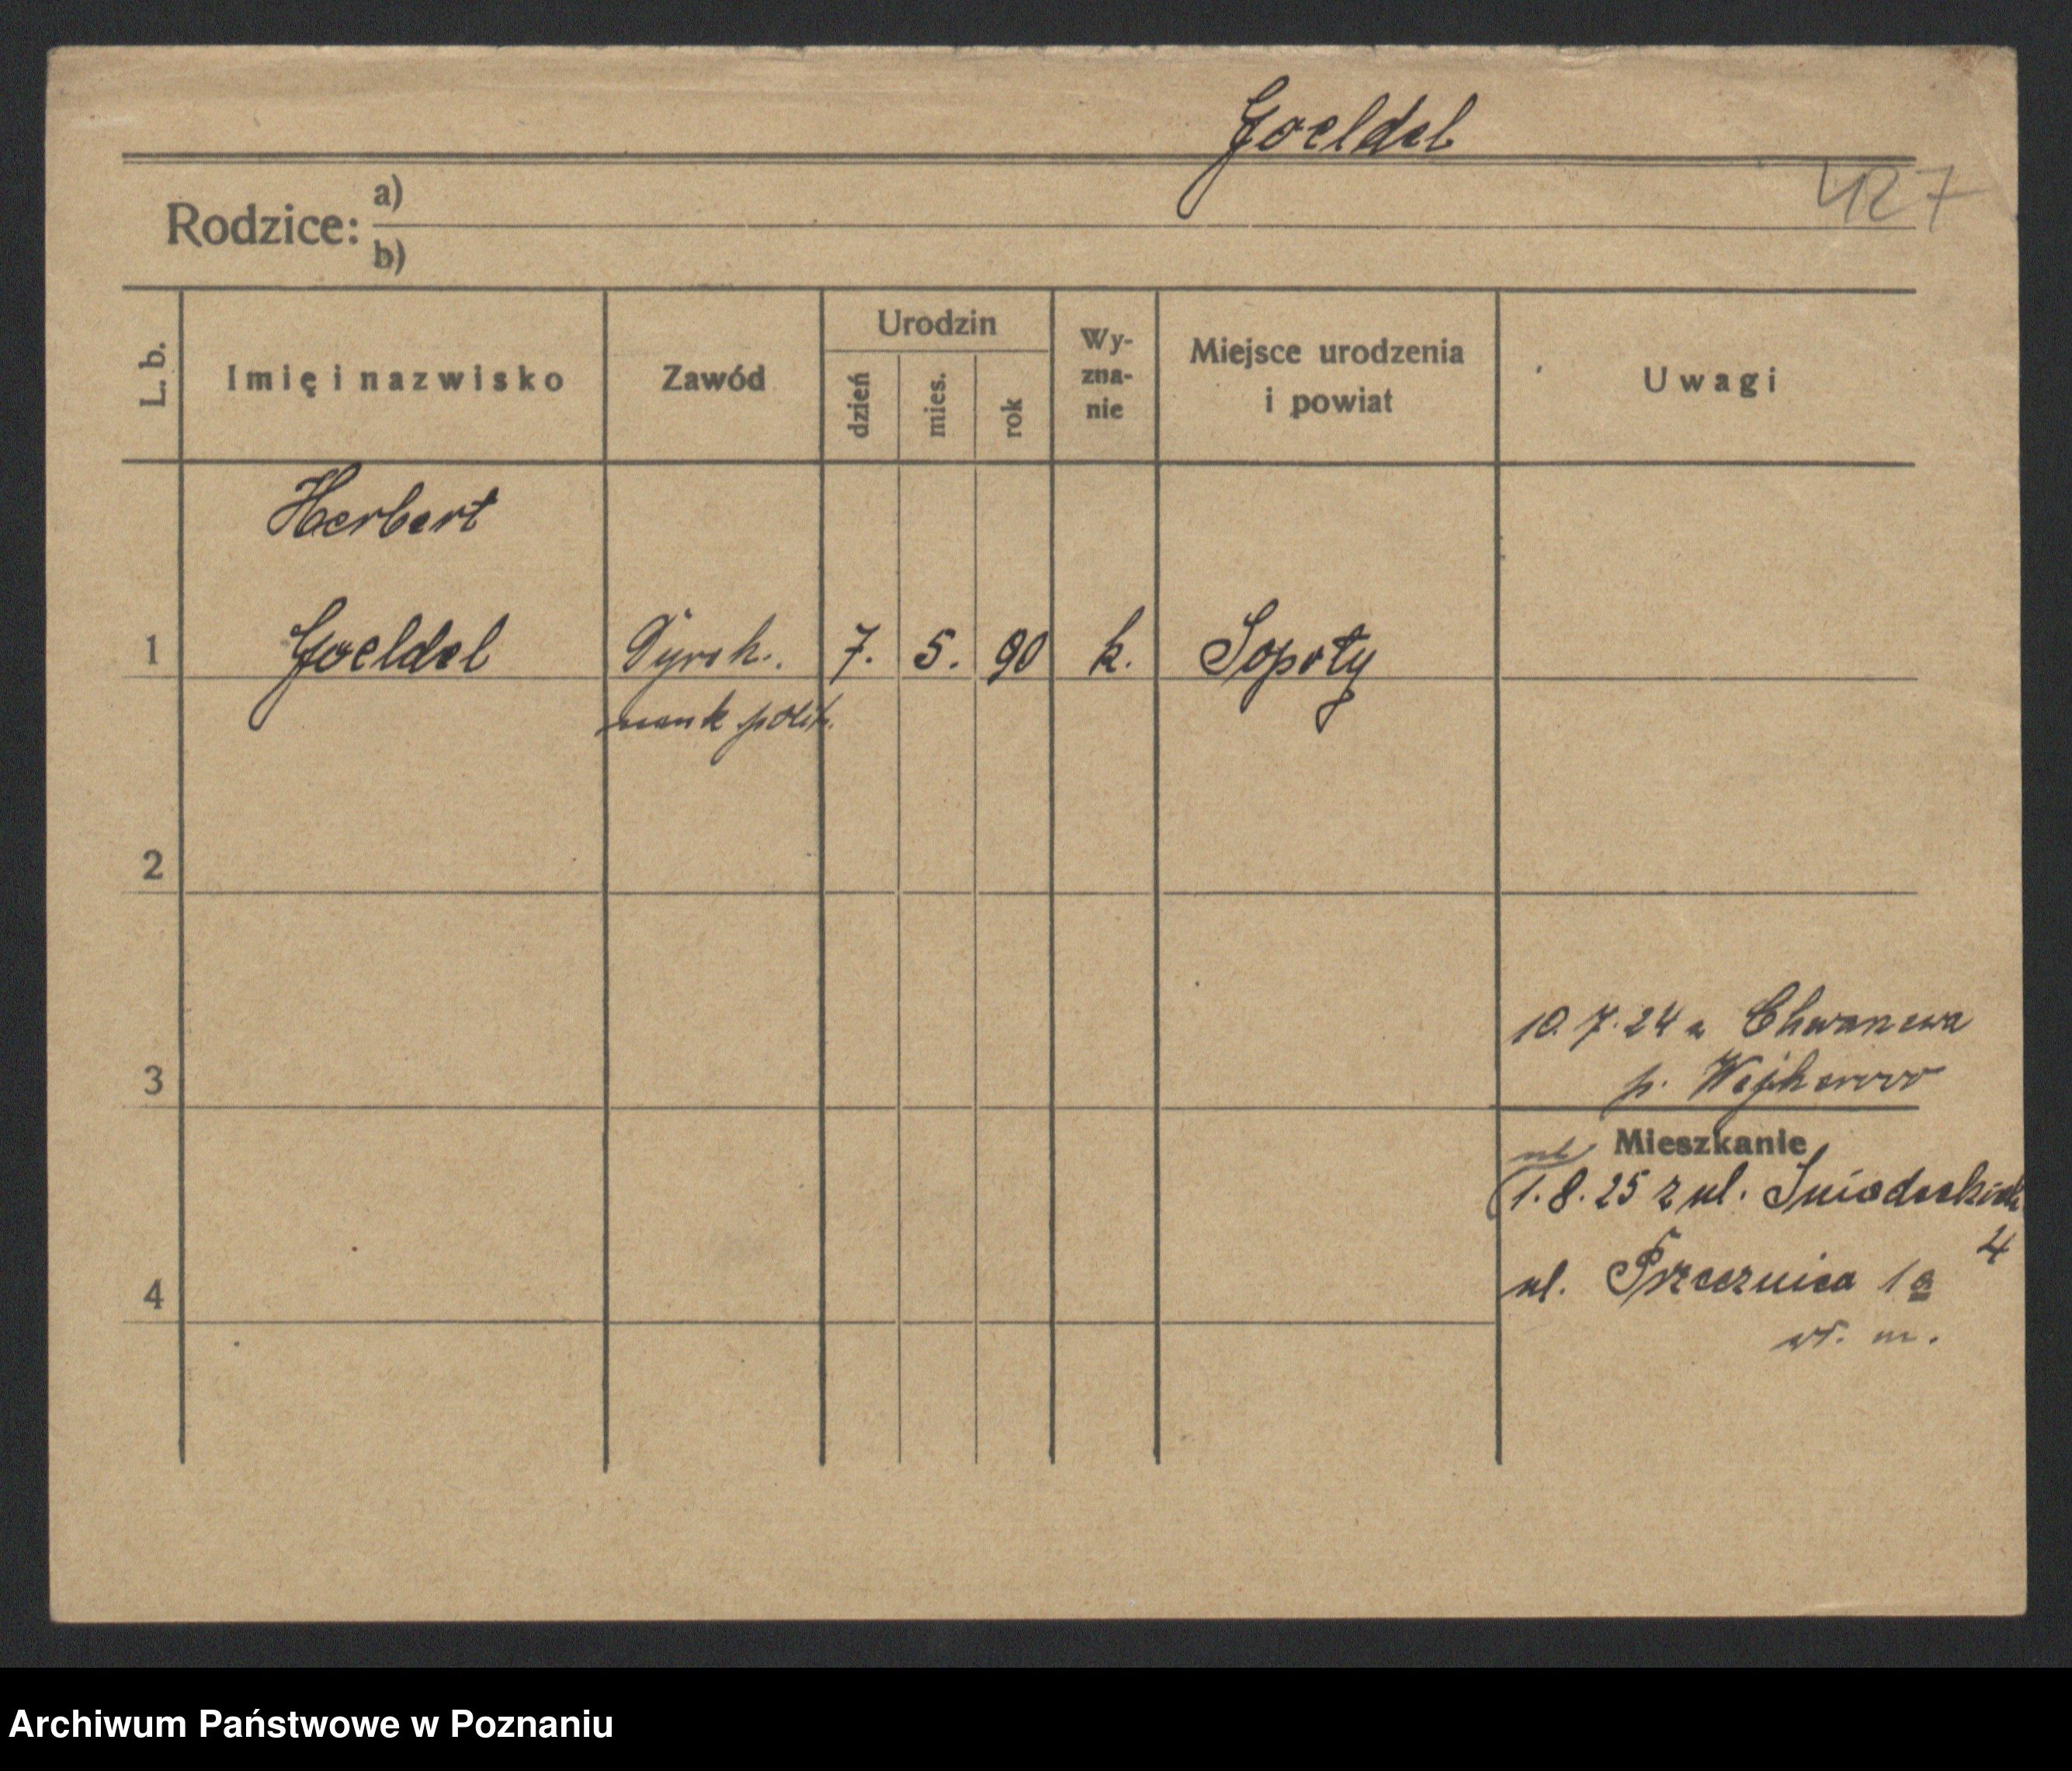 Goeldel
427
Rodzice: a)
b)
L. b. Imię i nazwisko Zawód Urodzin dzień mies. rok Wy-zna-nie Miejsce urodzenia i powiat Uwagi
Herbert
1 Goeldel Dyrek. 7. 5. 90 k. Sopoty
nauk polit.
2
10. 7. 24 z
3 p. Wejherowo
Mieszkanie
1. 8. 25 z ul. Śniadeckich 4
4 ul. Przecznica 1a
w. m.
Archiwum Państwowe w Poznaniu